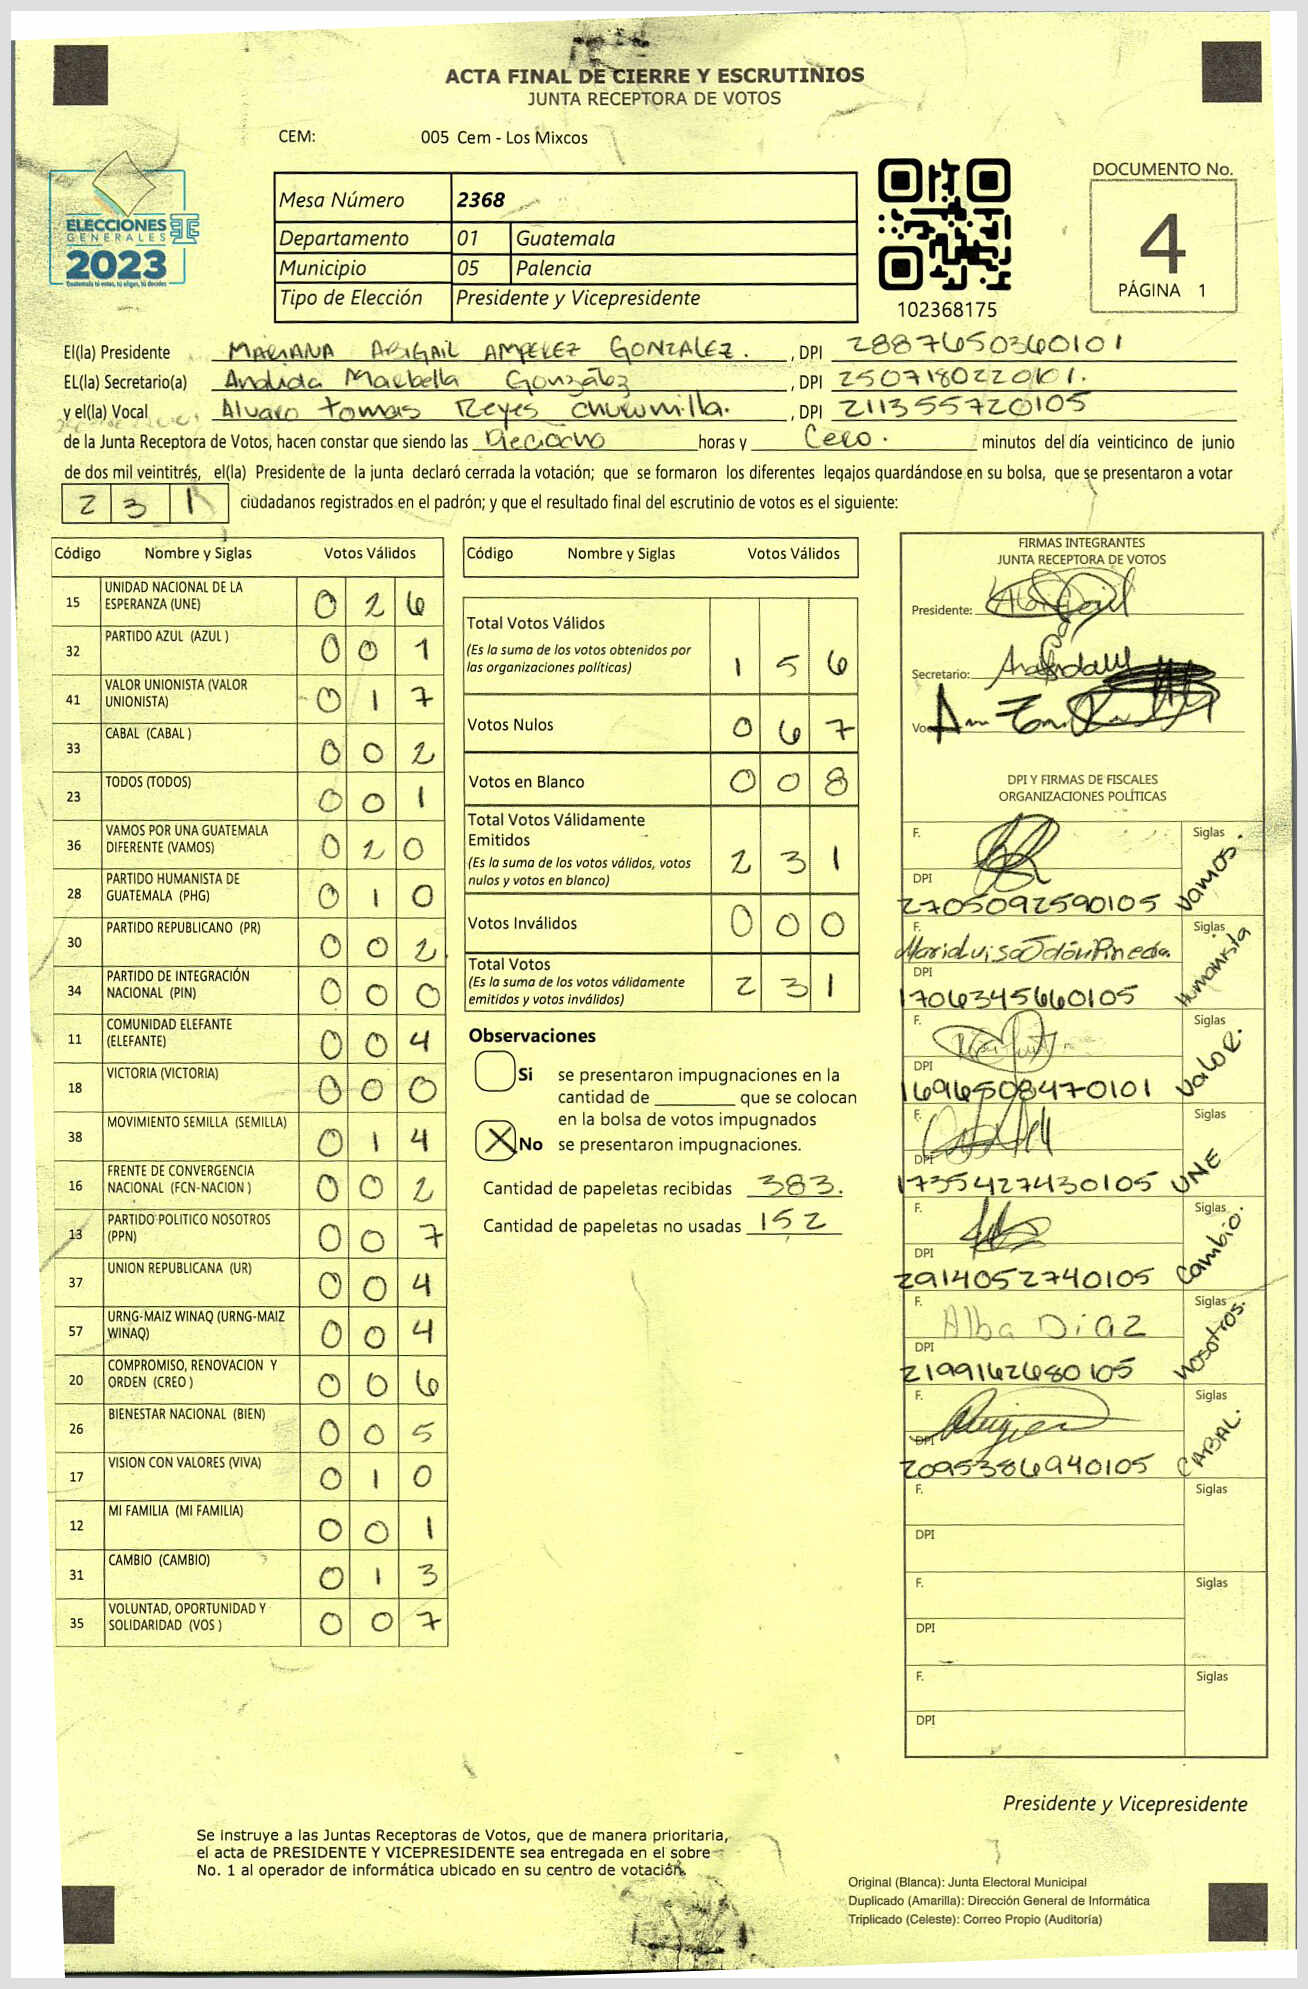 ACTA FINAL DE CIERRE Y ESCRUTINIOS
JUNTA RECEPTORA DE VOTOS
CEM: 005 Cem - Los Mixcos
ELECCIONES
GENERALES
2023
Guatemala tú votas, tú eliges, tú decides
Mesa Número 2368
Departamento 01 Guatemala
Municipio 05 Palencia
Tipo de Elección Presidente y Vicepresidente
102368175
DOCUMENTO No.
4
PÁGINA 1
El(la) Presidente MARIANA ABIGAIL AMPEREZ GONZALEZ. , DPI 2887650360101
EL(la) Secretario(a) Andida Maribella González , DPI 2507180220101.
y el(la) Vocal Alvaro tomas Reyes Chuvumilla. , DPI 211355720105
de la Junta Receptora de Votos, hacen constar que siendo las Dieciocho horas y Cero. minutos del día veinticinco de junio
de dos mil veintitrés, el(la) Presidente de la junta declaró cerrada la votación; que se formaron los diferentes legajos guardándose en su bolsa, que se presentaron a votar
231 ciudadanos registrados en el padrón; y que el resultado final del escrutinio de votos es el siguiente:
Código Nombre y Siglas Votos Válidos
15 UNIDAD NACIONAL DE LA ESPERANZA (UNE) 0 2 6
32 PARTIDO AZUL (AZUL ) 0 0 1
41 VALOR UNIONISTA (VALOR UNIONISTA) 0 1 7
33 CABAL (CABAL ) 0 0 2
23 TODOS (TODOS) 0 0 1
36 VAMOS POR UNA GUATEMALA DIFERENTE (VAMOS) 0 2 0
28 PARTIDO HUMANISTA DE GUATEMALA (PHG) 0 1 0
30 PARTIDO REPUBLICANO (PR) 0 0 2
34 PARTIDO DE INTEGRACIÓN NACIONAL (PIN) 0 0 0
11 COMUNIDAD ELEFANTE (ELEFANTE) 0 0 4
18 VICTORIA (VICTORIA) 0 0 0
38 MOVIMIENTO SEMILLA (SEMILLA) 0 1 4
16 FRENTE DE CONVERGENCIA NACIONAL (FCN-NACION ) 0 0 2
13 PARTIDO POLITICO NOSOTROS (PPN) 0 0 7
37 UNION REPUBLICANA (UR) 0 0 4
57 URNG-MAIZ WINAQ (URNG-MAIZ WINAQ) 0 0 4
20 COMPROMISO, RENOVACION Y ORDEN (CREO ) 0 0 6
26 BIENESTAR NACIONAL (BIEN) 0 0 5
17 VISION CON VALORES (VIVA) 0 1 0
12 MI FAMILIA (MI FAMILIA) 0 0 1
31 CAMBIO (CAMBIO) 0 1 3
35 VOLUNTAD, OPORTUNIDAD Y SOLIDARIDAD (VOS ) 0 0 7
Código Nombre y Siglas Votos Válidos
Total Votos Válidos
(Es la suma de los votos obtenidos por
las organizaciones políticas) 1 5 6
Votos Nulos 0 6 7
Votos en Blanco 0 0 8
Total Votos Válidamente
Emitidos
(Es la suma de los votos válidos, votos
nulos y votos en blanco) 2 3 1
Votos Inválidos 0 0 0
Total Votos
(Es la suma de los votos válidamente
emitidos y votos inválidos) 2 3 1
Observaciones
Si se presentaron impugnaciones en la
cantidad de ________ que se colocan
en la bolsa de votos impugnados
X No se presentaron impugnaciones.
Cantidad de papeletas recibidas 383.
Cantidad de papeletas no usadas 152
FIRMAS INTEGRANTES
JUNTA RECEPTORA DE VOTOS
Presidente:
Secretario:
DPI Y FIRMAS DE FISCALES
ORGANIZACIONES POLÍTICAS
F. Siglas Vamos.
DPI
2705092590105
F. Maria Luisa Jolón Pineda Siglas Humanista
DPI
1706345660105
F. Siglas Valor.
DPI
1696508470101
F. Siglas UNE
DPI
1735427430105
F. Siglas Cambio.
DPI
2914052740105
F. Alba Diaz Siglas Nosotros.
DPI
2199162680105
F. Siglas CABAL.
DPI
2095386940105
F. Siglas
DPI
F. Siglas
DPI
F. Siglas
DPI
Presidente y Vicepresidente
Se instruye a las Juntas Receptoras de Votos, que de manera prioritaria,
el acta de PRESIDENTE Y VICEPRESIDENTE sea entregada en el sobre
No. 1 al operador de informática ubicado en su centro de votación.
Original (Blanca): Junta Electoral Municipal
Duplicado (Amarilla): Dirección General de Informática
Triplicado (Celeste): Correo Propio (Auditoría)